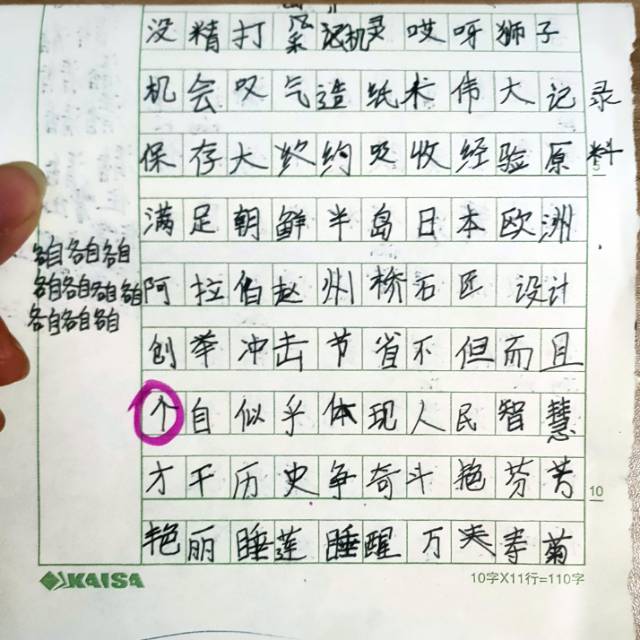 没精打紧记机灵哎呀狮子
机会叹气造纸术伟大记录
保存大约约吸收经验原料
5
满足朝鲜半岛日本欧洲
各自各自各自
各自各自各自各自
各自各自各自
阿拉伯赵州桥石匠设计
创举冲击节省不但而且
个自似乎体现人民智慧
才干历史争奇斗艳芬芳
10
艳丽睡莲睡醒万寿菊
KAISA
10字X11行=110字